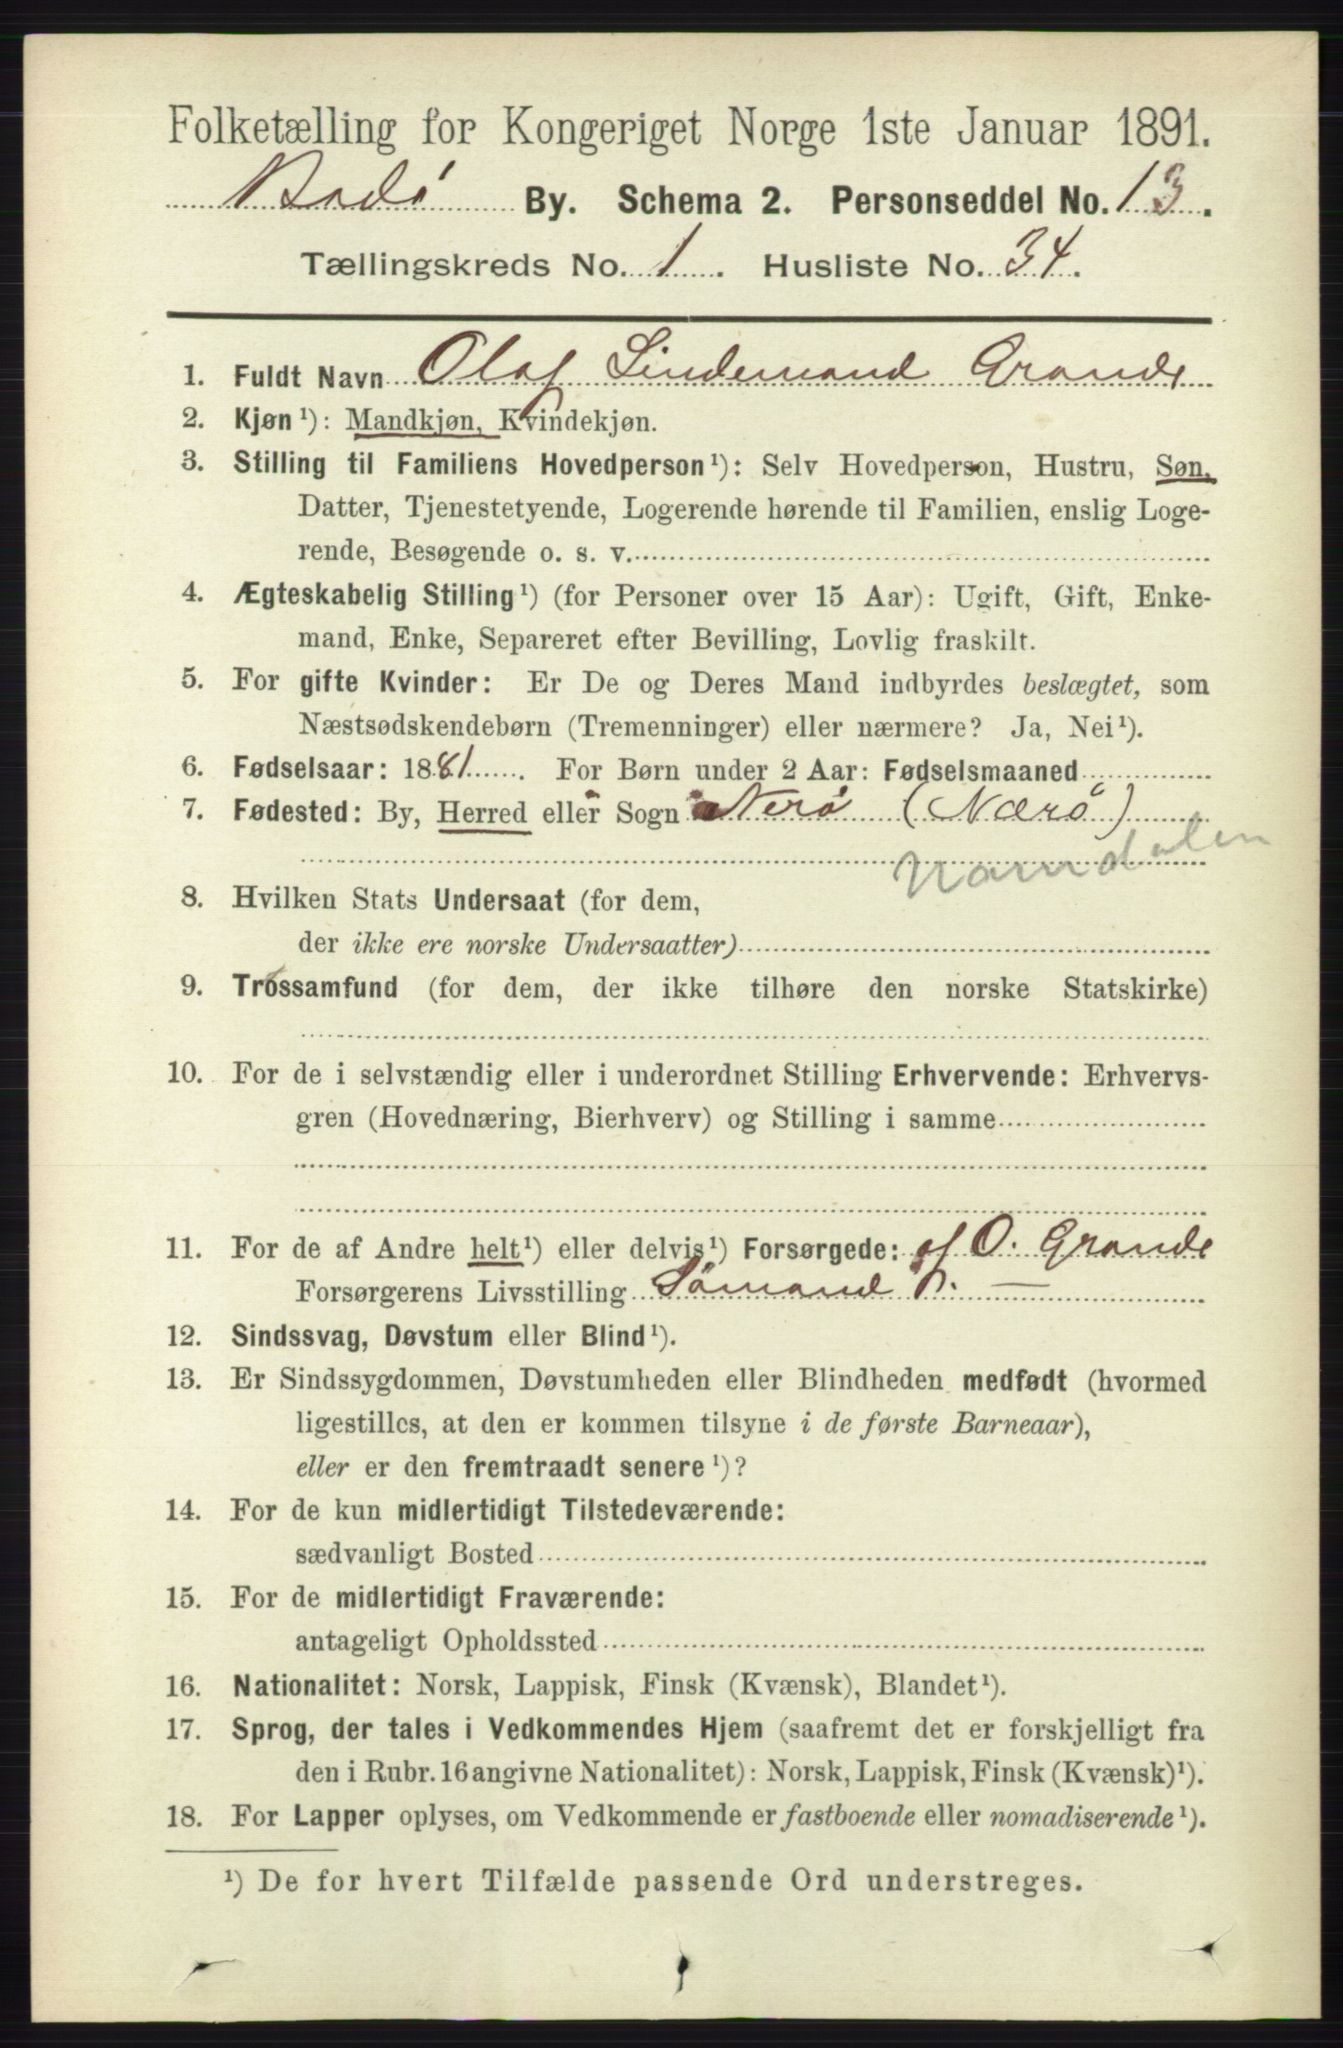 Folketælling for Kongeriget Norge 1ste Januar 1891.
Bodö By. Schema 2. Personseddel No. 13.
Tællingskreds No. 1. Husliste No. 34.
1. Fuldt Navn Olaf Lindemand Grande
2. Kjøn¹): Mandkjøn, Kvindekjøn.
3. Stilling til Familiens Hovedperson¹): Selv Hovedperson, Hustru, Søn,
Datter, Tjenestetyende, Logerende hørende til Familien, enslig Loge-
rende, Besøgende o. s. v.
4. Ægteskabelig Stilling¹) (for Personer over 15 Aar): Ugift, Gift, Enke-
mand, Enke, Separeret efter Bevilling, Lovlig fraskilt.
5. For gifte Kvinder: Er De og Deres Mand indbyrdes beslægtet, som
Næstsødskendebørn (Tremenninger) eller nærmere? Ja, Nei¹).
6. Fødselsaar: 1881. For Børn under 2 Aar: Fødselsmaaned
7. Fødested: By, Herred eller Sogn Nerö (Nærö)
Namdalen
8. Hvilken Stats Undersaat (for dem,
der ikke ere norske Undersaatter)
9. Trossamfund (for dem, der ikke tilhøre den norske Statskirke)
10. For de i selvstændig eller i underordnet Stilling Erhvervende: Erhvervs-
gren (Hovednæring, Bierhverv) og Stilling i samme
11. For de af Andre helt¹) eller delvis¹) Forsørgede: af O. Grande
Forsørgerens Livsstilling Sömand
12. Sindssvag, Døvstum eller Blind¹).
13. Er Sindssygdommen, Døvstumheden eller Blindheden medfødt (hvormed
ligestilles, at den er kommen tilsyne i de første Barneaar),
eller er den fremtraadt senere¹)?
14. For de kun midlertidigt Tilstedeværende:
sædvanligt Bosted
15. For de midlertidigt Fraværende:
antageligt Opholdssted
16. Nationalitet: Norsk, Lappisk, Finsk (Kvænsk), Blandet¹).
17. Sprog, der tales i Vedkommendes Hjem (saafremt det er forskjelligt fra
den i Rubr. 16 angivne Nationalitet): Norsk, Lappisk, Finsk (Kvænsk)¹).
18. For Lapper oplyses, om Vedkommende er fastboende eller nomadiserende¹).
¹) De for hvert Tilfælde passende Ord understreges.